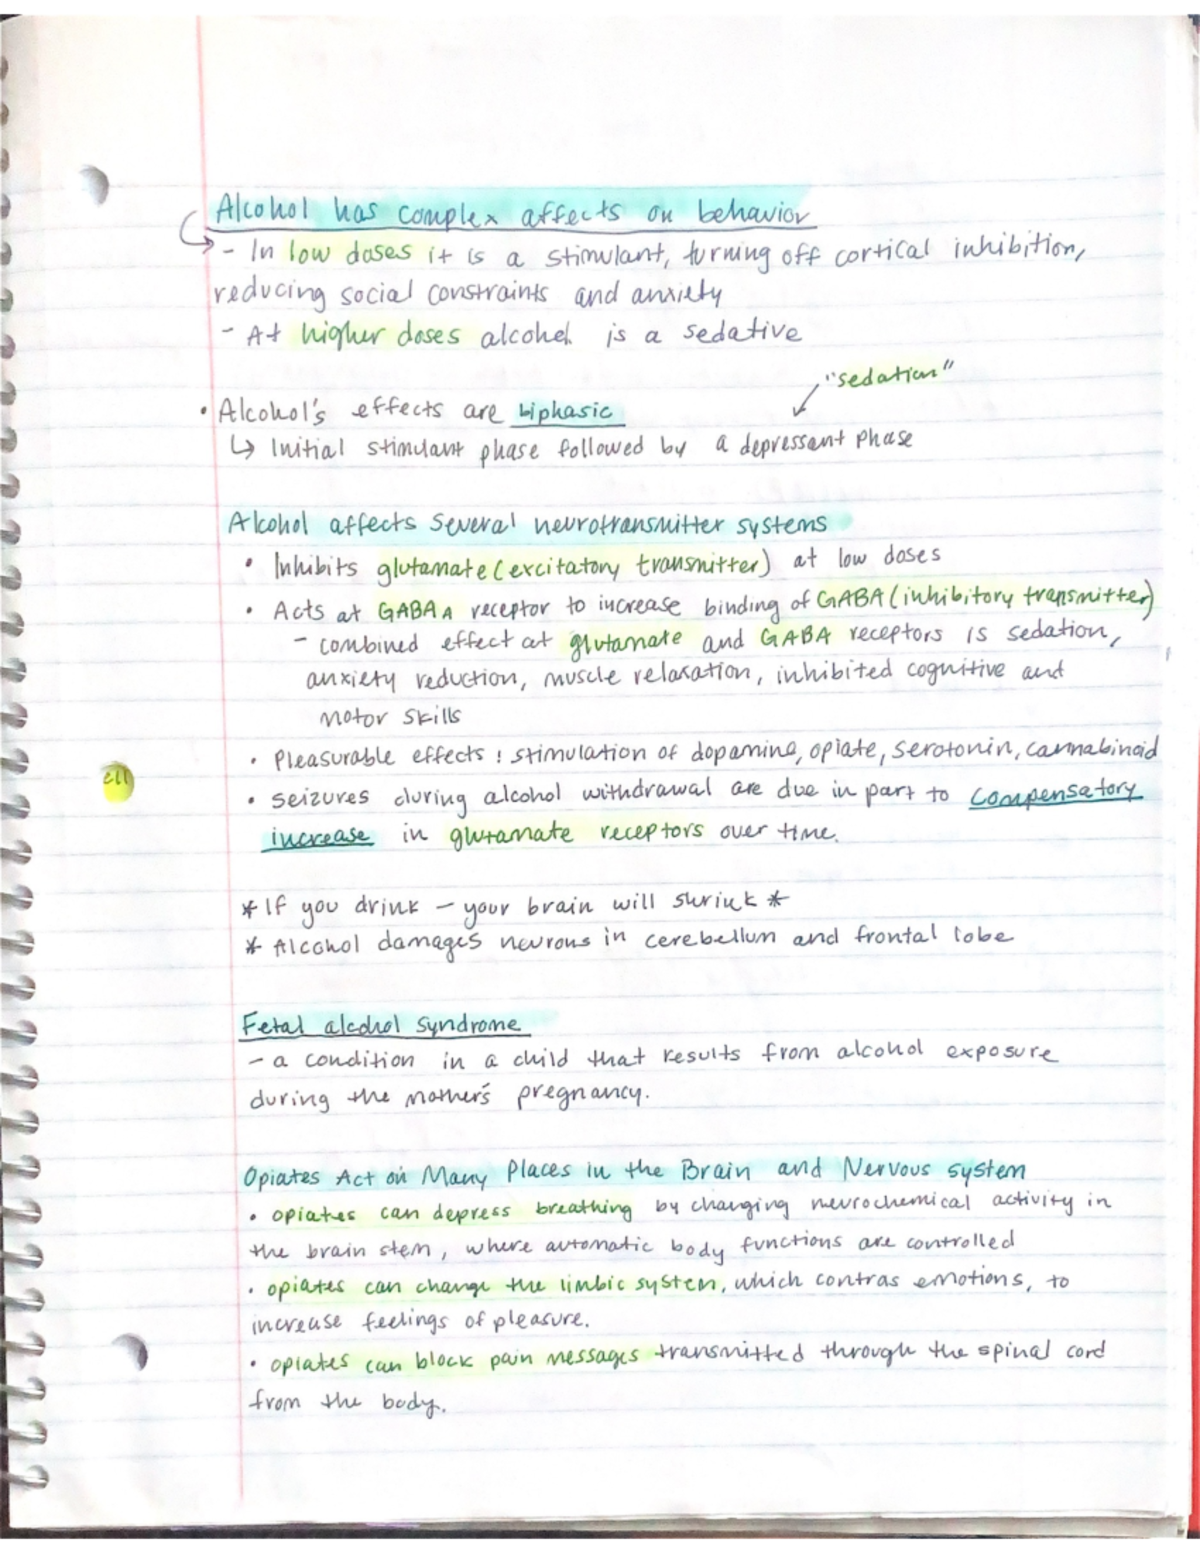 Alcohol has complex affects on behavior
- In low doses it is a stimulant, turning off cortical inhibition,
reducing social constraints and anxiety
- At higher doses alcohol is a sedative
"sedation"
• Alcohol's effects are biphasic
↳ Initial stimulant phase followed by a depressant phase
Alcohol affects several neurotransmitter systems
• Inhibits glutamate (excitatory transmitter) at low doses
• Acts at GABA A receptor to increase binding of GABA (inhibitory transmitter)
- combined effect at glutamate and GABA receptors is sedation,
anxiety reduction, muscle relaxation, inhibited cognitive and
motor skills
• Pleasurable effects: stimulation of dopamine, opiate, serotonin, cannabinoid
ell
• seizures during alcohol withdrawal are due in part to compensatory
increase in glutamate receptors over time.
* If you drink - your brain will shrink *
* Alcohol damages neurons in cerebellum and frontal lobe
Fetal alcohol syndrome
- a condition in a child that results from alcohol exposure
during the mother's pregnancy.
Opiates Act on Many Places in the Brain and Nervous system
• opiates can depress breathing by changing neurochemical activity in
the brain stem, where automatic body functions are controlled
• opiates can change the limbic system, which contras emotions, to
increase feelings of pleasure.
• opiates can block pain messages transmitted through the spinal cord
from the body.